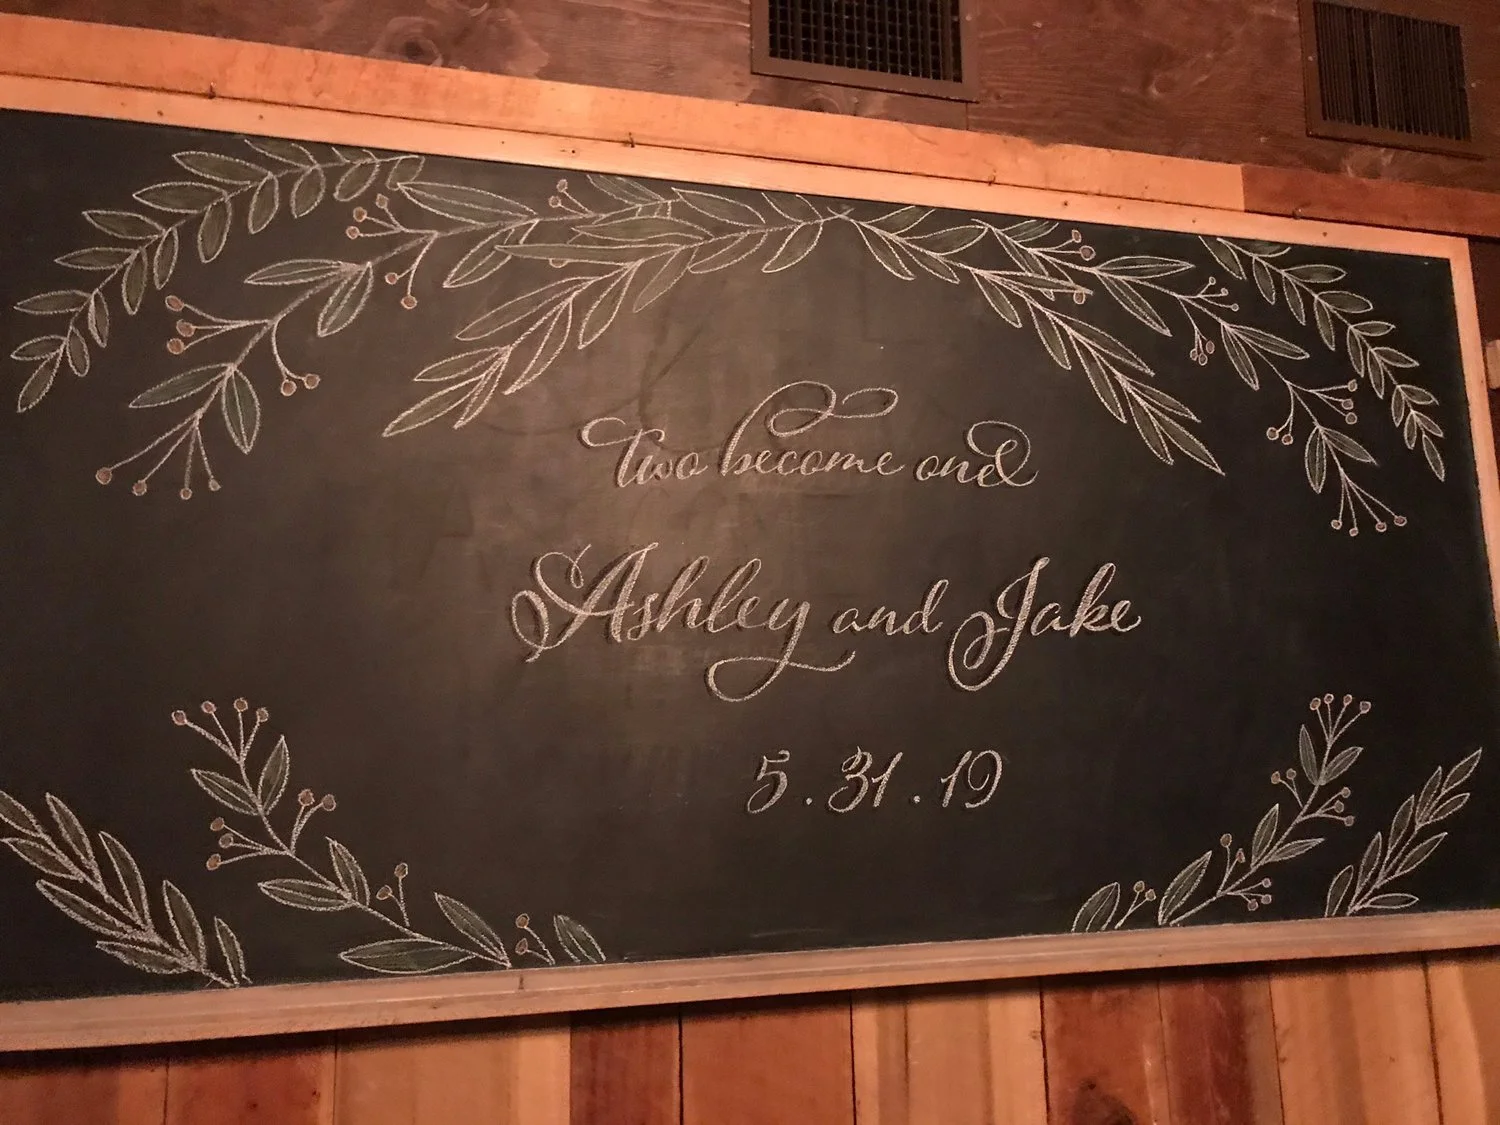 two become one
Ashley and Jake
5.31.19